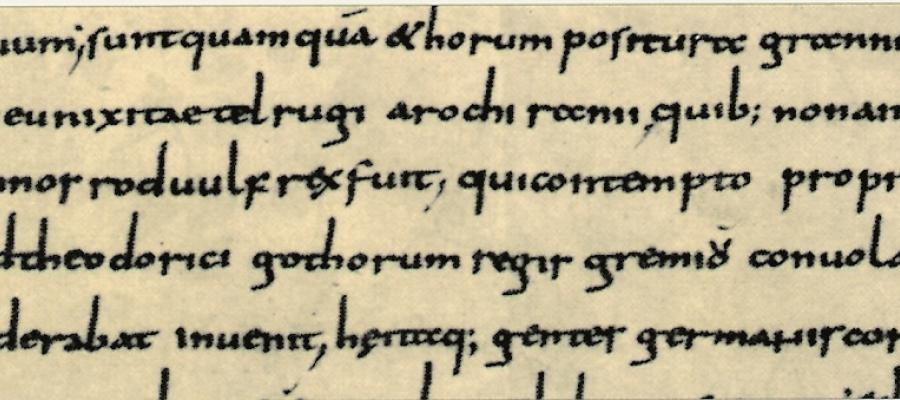 sunt quam quā & horum positura grann
eunixi taetel rugi arochi ranii, quib; non an
roduulf rex fuit, qui contempto propr
theodorici gothorum regis gremiō convol
derabat invenit, hęitaq; gentes germanis